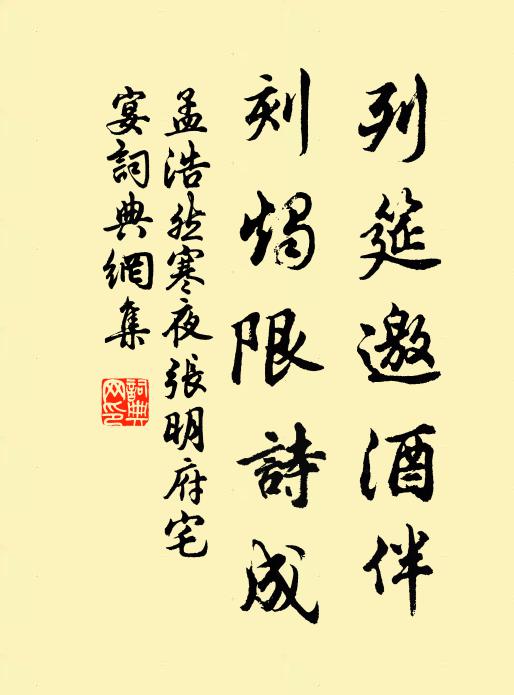 列筵邀酒伴
刻燭限詩成
孟浩然寒夜張明府宅
宴詞典網集
詞典
网印